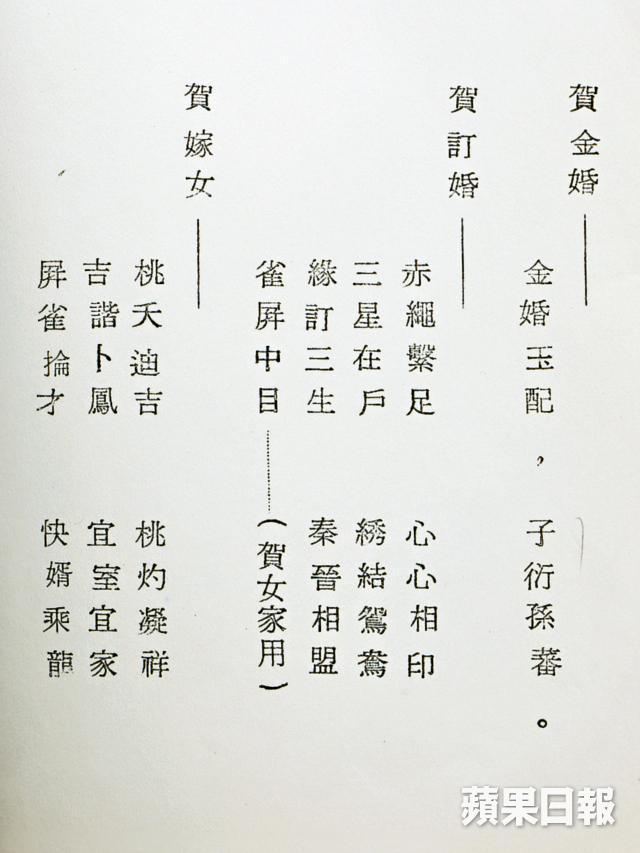 賀金婚
金婚玉配，子衍孫蕃。
賀訂婚
赤繩繫足 心心相印
三星在戶 綉結鴛鴦
緣訂三生 秦晉相盟
雀屏中目…………(賀女家用)
賀嫁女
桃夭迪吉 桃灼凝祥
吉諧卜鳳 宜室宜家
屏雀掄才 快婿乘龍
蘋果日報